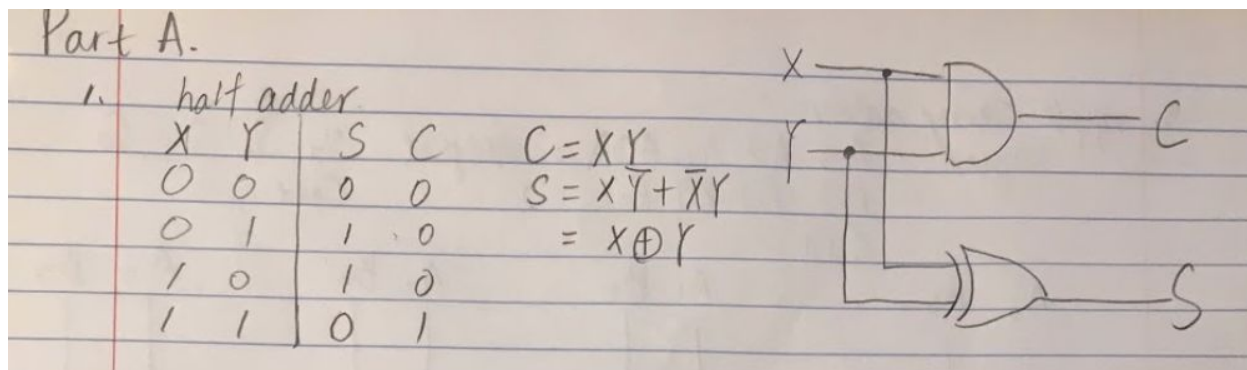 Part A.
1. half adder
X Y S C
0 0 0 0
0 1 1 0
1 0 1 0
1 1 0 1
C = XY
S = XY̅ + X̅Y
= X⊕Y
X
Y
C
S